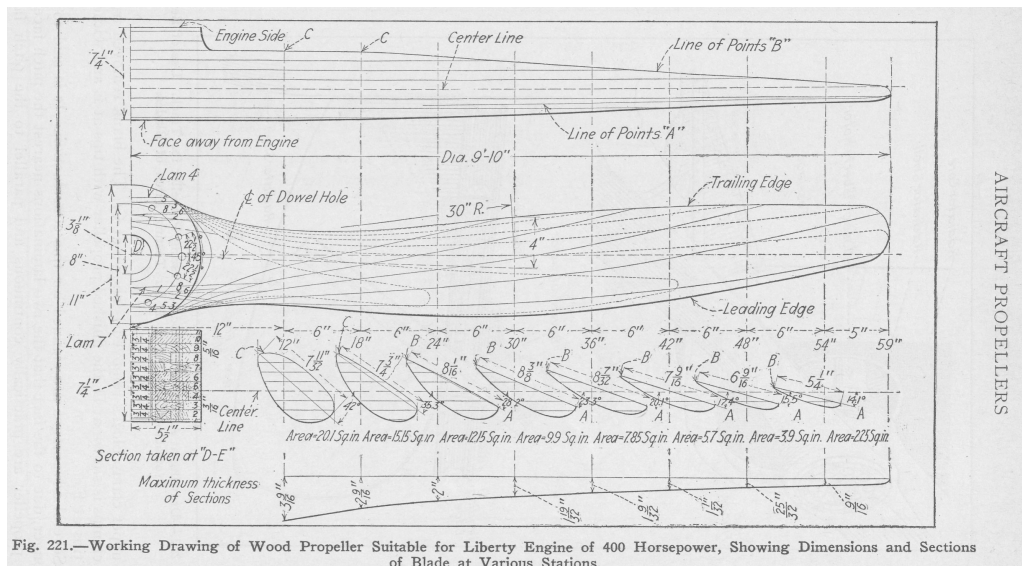 Engine Side
C
C
Center Line
Line of Points "B"
7 1/4"
Face away from Engine
Line of Points "A"
Dia. 9'-10"
Lam 4
℄ of Dowel Hole
30" R.
Trailing Edge
4"
3 1/8"
8"
11"
D
22 1/2°
45°
Leading Edge
Lam 7
12"
6" 6" 6" 6" 6" 6" 6" 5"
12" 18" 24" 30" 36" 42" 48" 54" 59"
C C B B B B B B
7 11/32" 7 3/4" 8 1/16" 8 3/8" 8 7/32" 7 9/16" 6 9/16" 5 1/4"
42° 35.3° 28.2° 23.3° 20.1° 17.4° 15.5° 14.1°
A A A A A A
7 1/4"
5 1/2"
Center Line
Area=20.1 Sq.in. Area=15.15 Sq.in. Area=12.15 Sq.in. Area=9.9 Sq.in. Area=7.85 Sq.in. Area=5.7 Sq.in. Area=3.9 Sq.in. Area=2.25 Sq.in.
Section taken at "D-E"
Maximum thickness
of Sections
3 9/16" 2 9/16" 2" 1 19/32" 1 9/32" 1 1/32" 25/32" 9/16"
AIRCRAFT PROPELLERS
Fig. 221.—Working Drawing of Wood Propeller Suitable for Liberty Engine of 400 Horsepower, Showing Dimensions and Sections
of Blade at Various Stations.